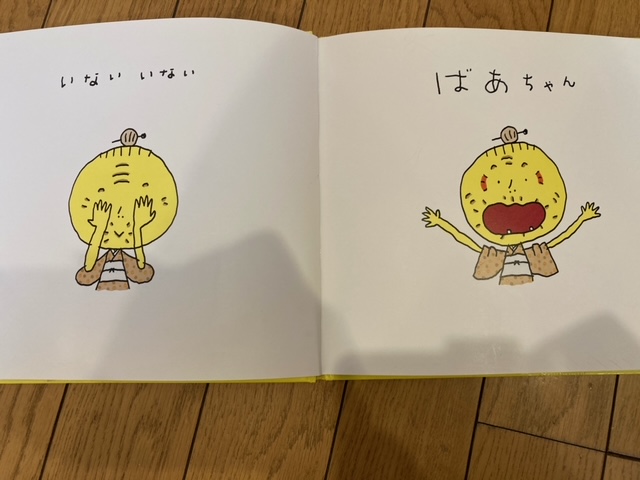 いない いない
ばあちゃん